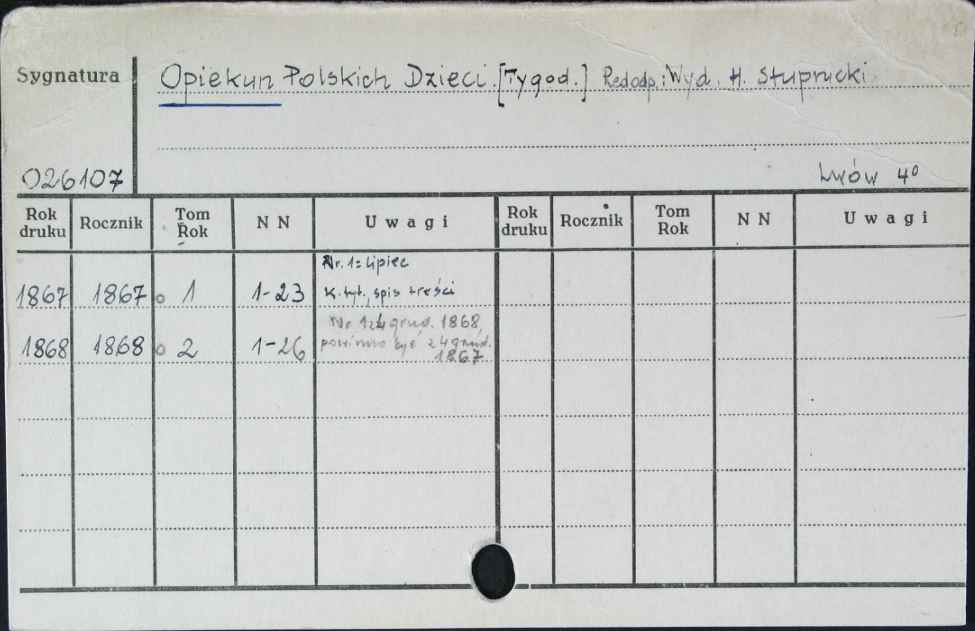 Sygnatura Opiekun Polskich Dzieci. [Tygod.] Red.odp. i Wyd. H. Stupnicki
026107 Lwów 4º
Rok druku Rocznik Tom Rok N N Uwagi Rok druku Rocznik Tom Rok N N Uwagi
Nr. 1: lipiec
1867 1867 o 1 1-23 K. tyt., spis treści
Nr 1 z 4 grud. 1868,
1868 1868 o 2 1-26 powinno być z 4 grud.
1867